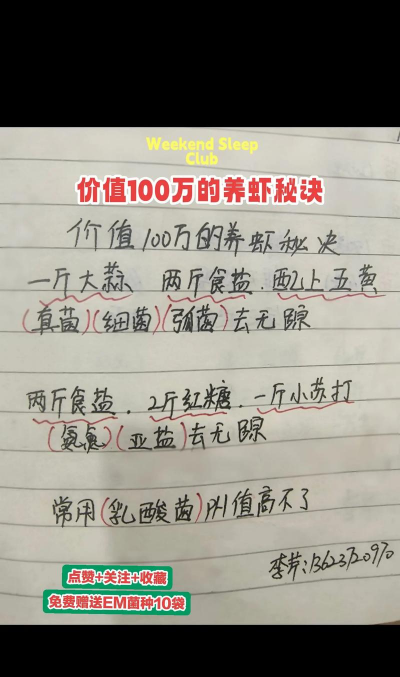 Weekend Sleep
Club
价值100万的养虾秘诀
价值100万的养虾秘决
一斤大蒜 两斤食盐.配上五黄
(真菌)(细菌)(弧菌)去无踪
两斤食盐.2斤红糖.一斤小苏打
(氨氮)(亚盐)去无踪
常用(乳酸菌)PH值高不了
点赞+关注+收藏
免费赠送EM菌种10袋